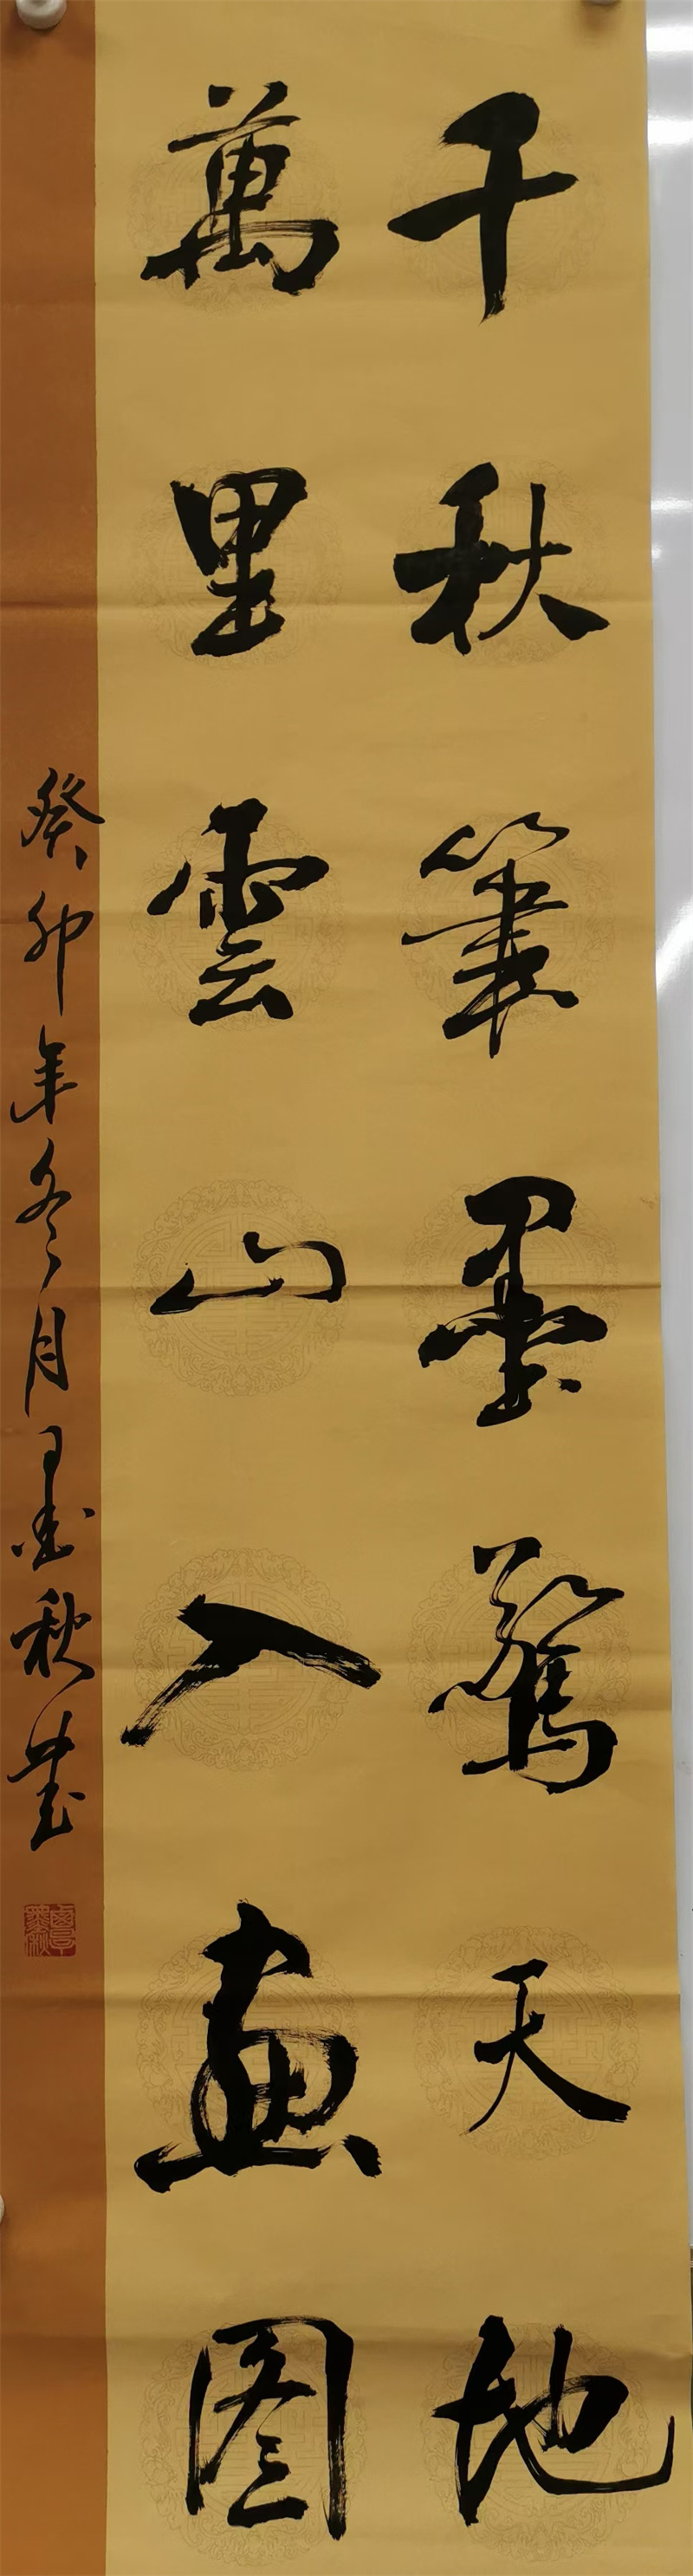 千秋筆墨驚天地
萬里雲山入畫图
癸卯年冬月墨秋書